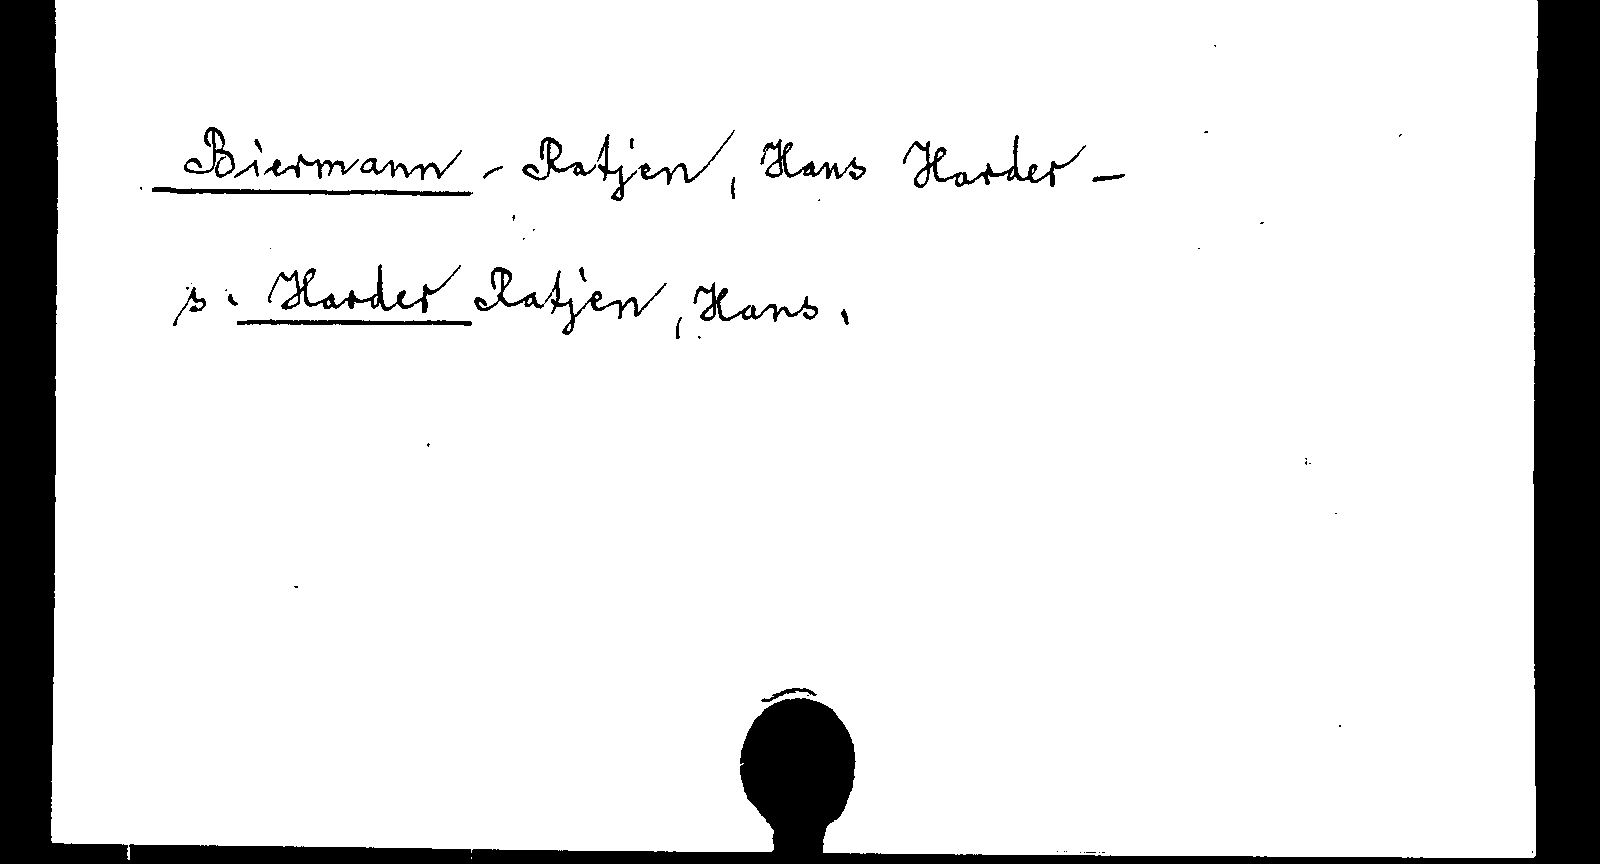 Biermann - Ratjen, Hans Harder -
s. Harder Ratjen, Hans.